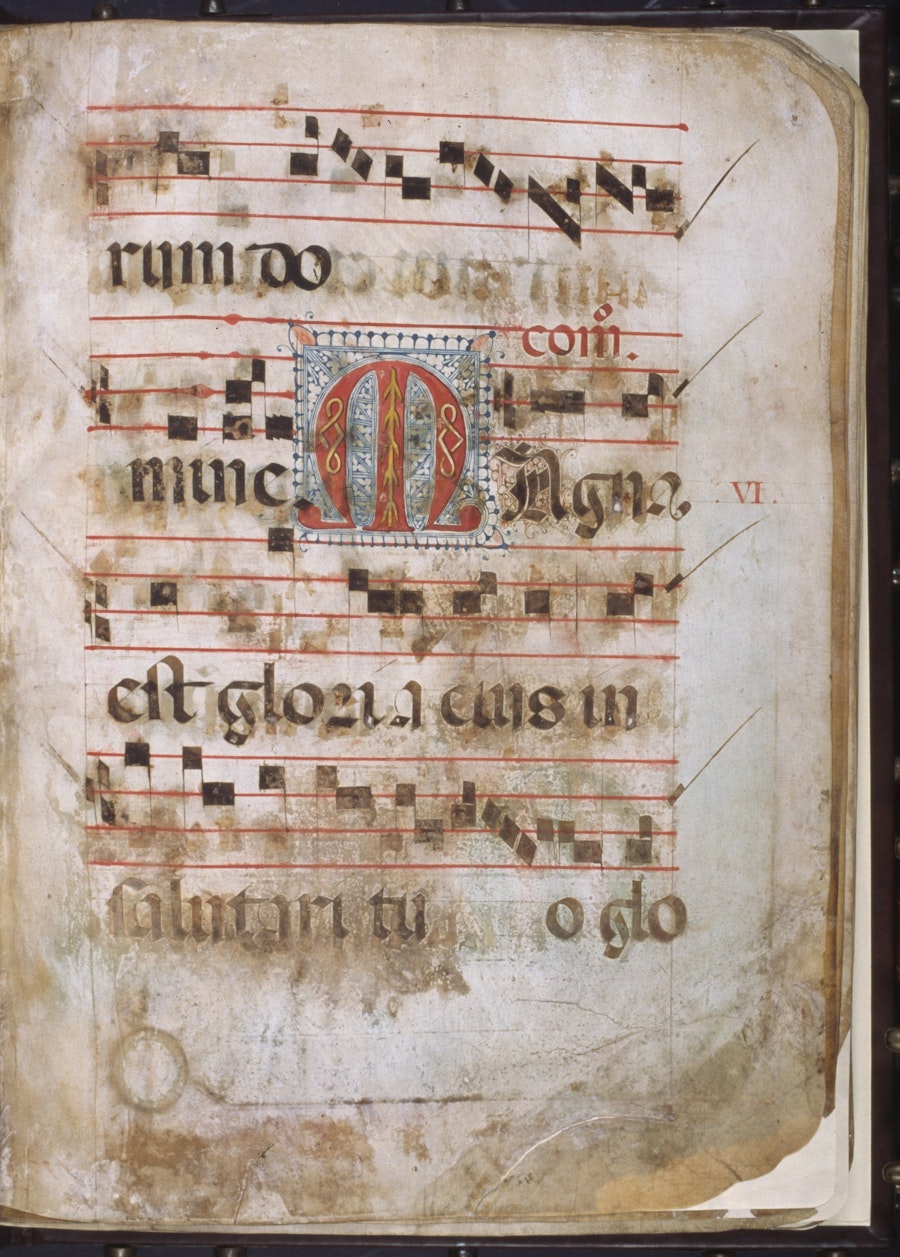 rum do
com̃.
mine. MAgna
.VI.
est gloria eius in
salutari tu o glo